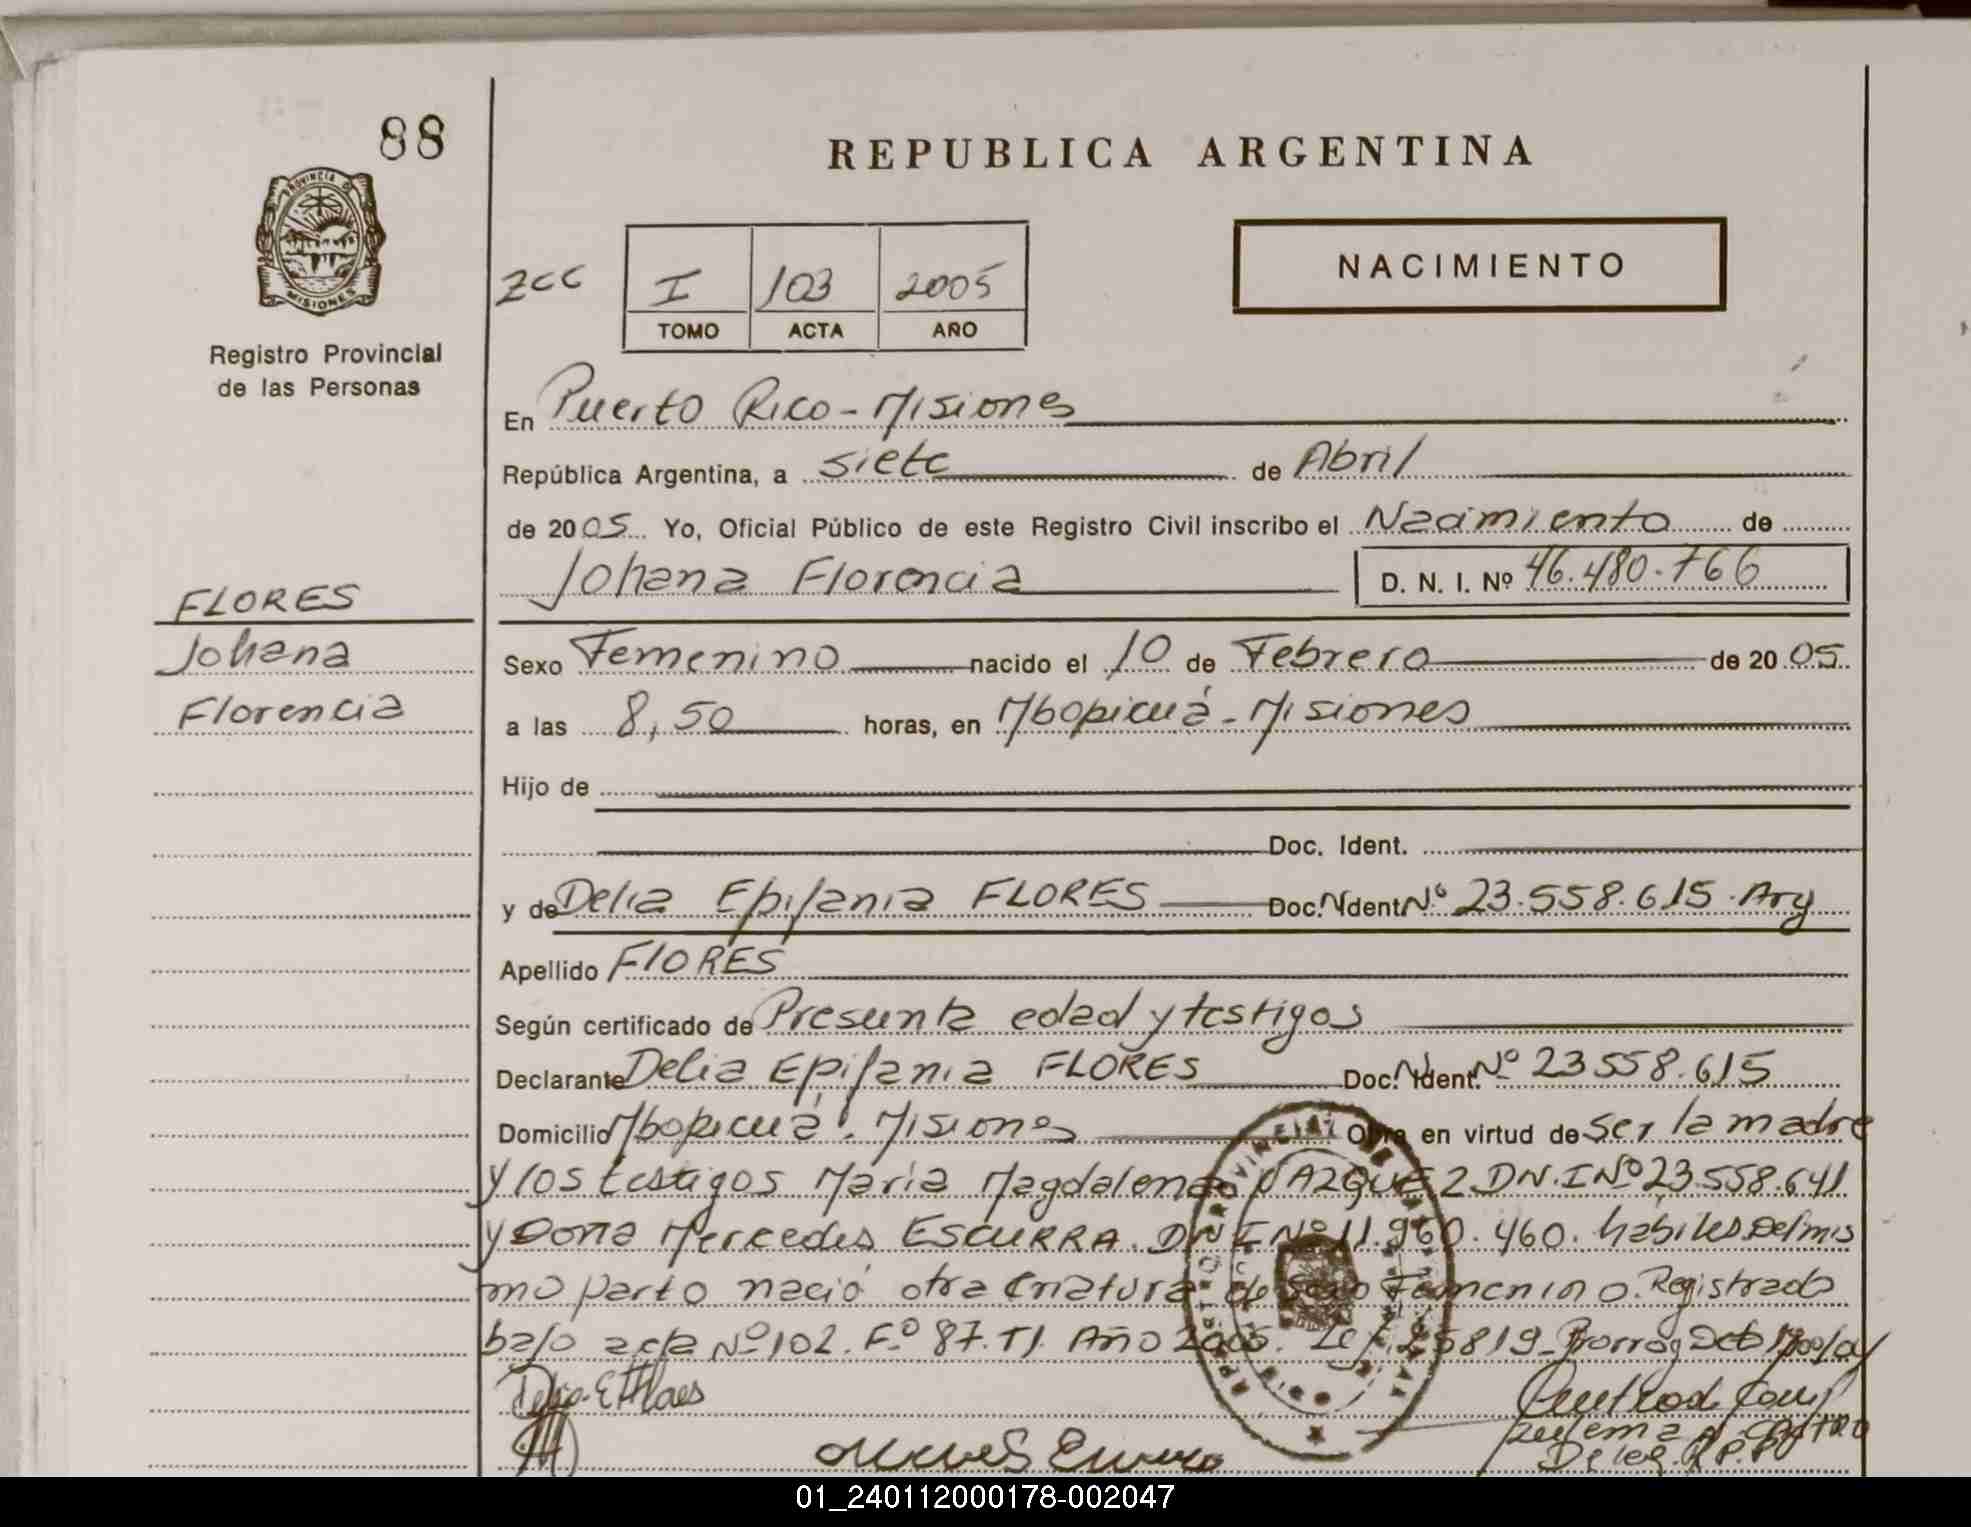 88
REPUBLICA ARGENTINA
PROVINCIA DE
MISIONES
Registro Provincial
de las Personas
NACIMIENTO
zcc
I 103 2005
TOMO ACTA AÑO
En Puerto Rico - Misiones
República Argentina, a siete de Abril
de 2005 Yo, Oficial Público de este Registro Civil inscribo el Nacimiento de
Johana Florencia D. N. I. Nº 46.480.766
FLORES
Johana
Florencia
Sexo Femenino nacido el 10 de Febrero de 2005
a las 8,50 horas, en Mbopicuá - Misiones
Hijo de
Doc. Ident.
y de Delia Epifania FLORES Doc. Ident Nº 23.558.615. Arg
Apellido FlORES
Según certificado de Presunta edad y testigos
Declarante Delia Epifania FLORES Doc. Ident. Nº 23558.615
Domicilio Mbopicuá. Misiones Obra en virtud de ser la madre
y los testigos María Magdalena VAZQUEZ DN.I Nº 23.558.641
y Doña Mercedes ESCURRA. DNI Nº 11.960.460. hábiles Del mis
mo parto nació otra criatura de sexo Femenino. Registrado
bajo acta Nº 102. Fº 87. T1. Año 2005. Ley 25819 - Prorrog Dcto
Delia E Flores
Deleg. R.P.P
01_240112000178-002047